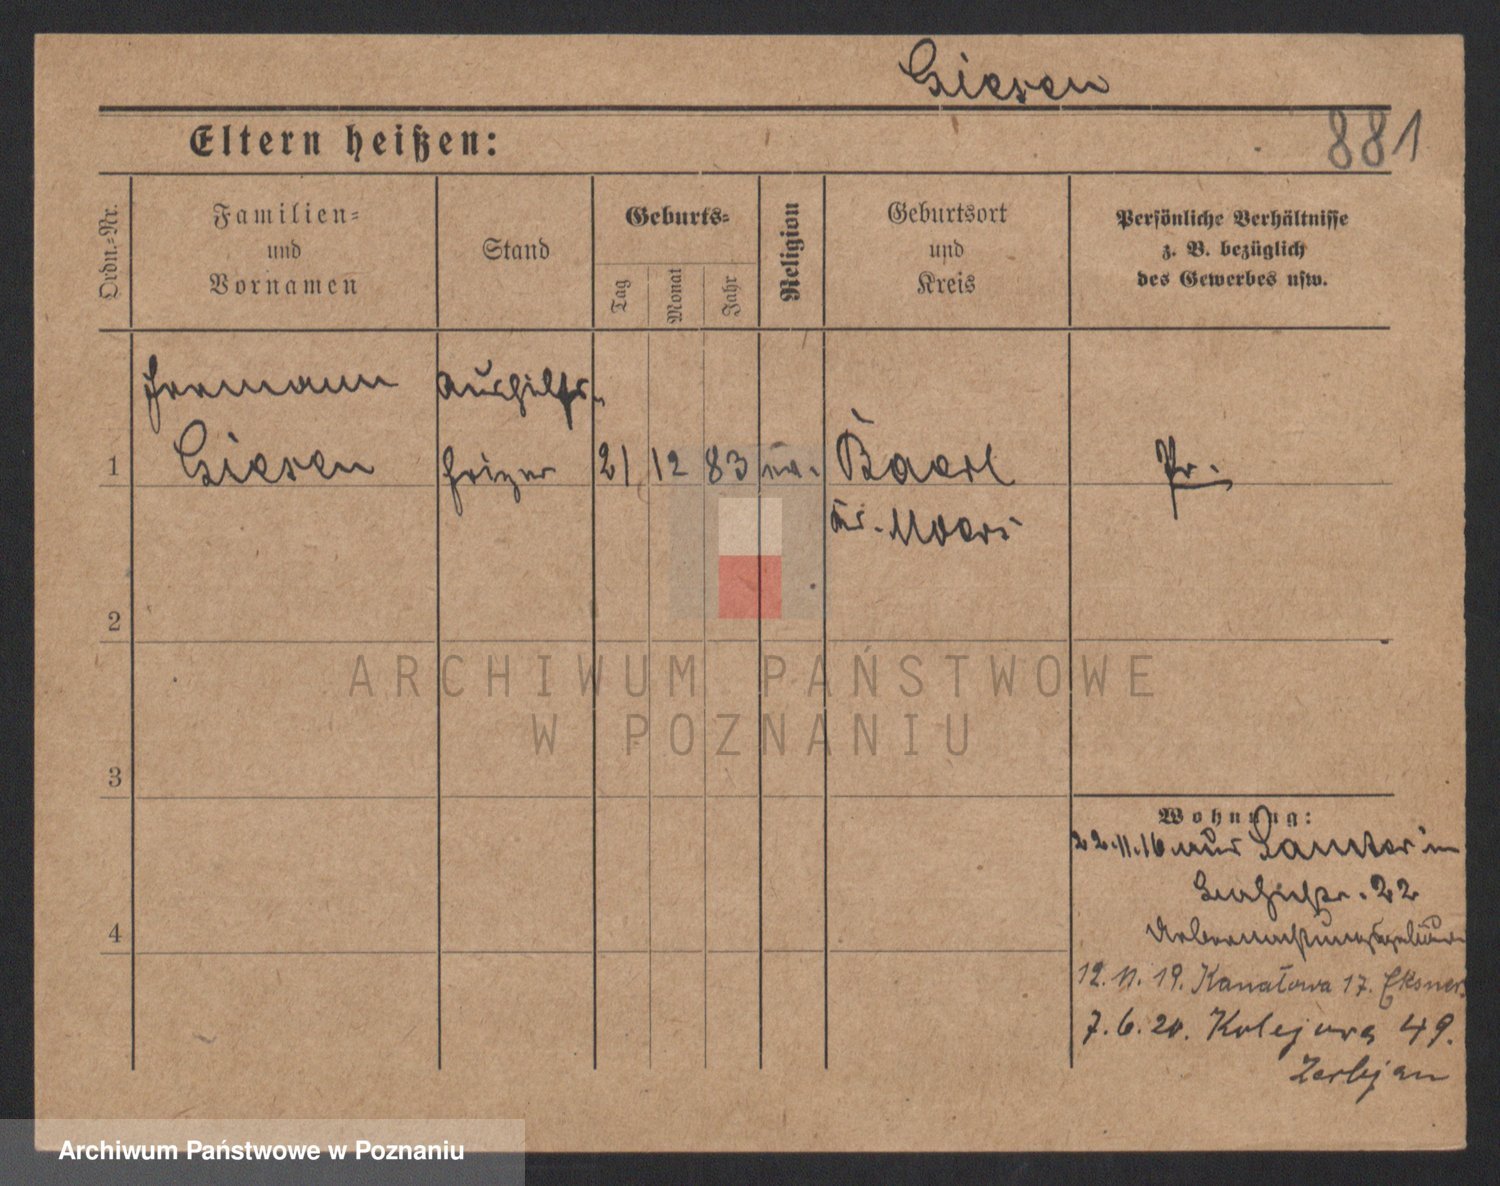 Giesen
881
Eltern heißen:
Ordn.-Nr.
Familien-
und
Vornamen
Stand
Geburts-
Tag
Monat
Jahr
Religion
Geburtsort
und
Kreis
Persönliche Verhältnisse
z. B. bezüglich
des Gewerbes usw.
Hermann
Giesen
Aushilfs-
heizer
21
12
83
ev.
Baerl
Kr. Moers
Pr.
1
2
3
4
Wohnung:
22.11.16 aus Samter in
22
Uebernachtungsgebäude
12. 11. 19. Kanałowa 17. Eksner
7. 6. 20. Kolejowa 49.
Zerbjan
ARCHIWUM PAŃSTWOWE
W POZNANIU
Archiwum Państwowe w Poznaniu